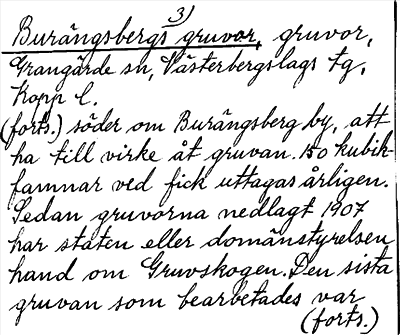 3)
Burängsbergs gruvor, gruvor,
Grangärde sn, Västerbergslags tg,
Kopp l.
(forts.) söder om Burängsberg by, att
ha till virke åt gruvan. 150 kubik-
famnar ved fick uttagas årligen.
Sedan gruvorna nedlagt 1907
har staten eller domänstyrelsen
hand om Gruvskogen. Den sista
gruvan som bearbetades var
(forts.)